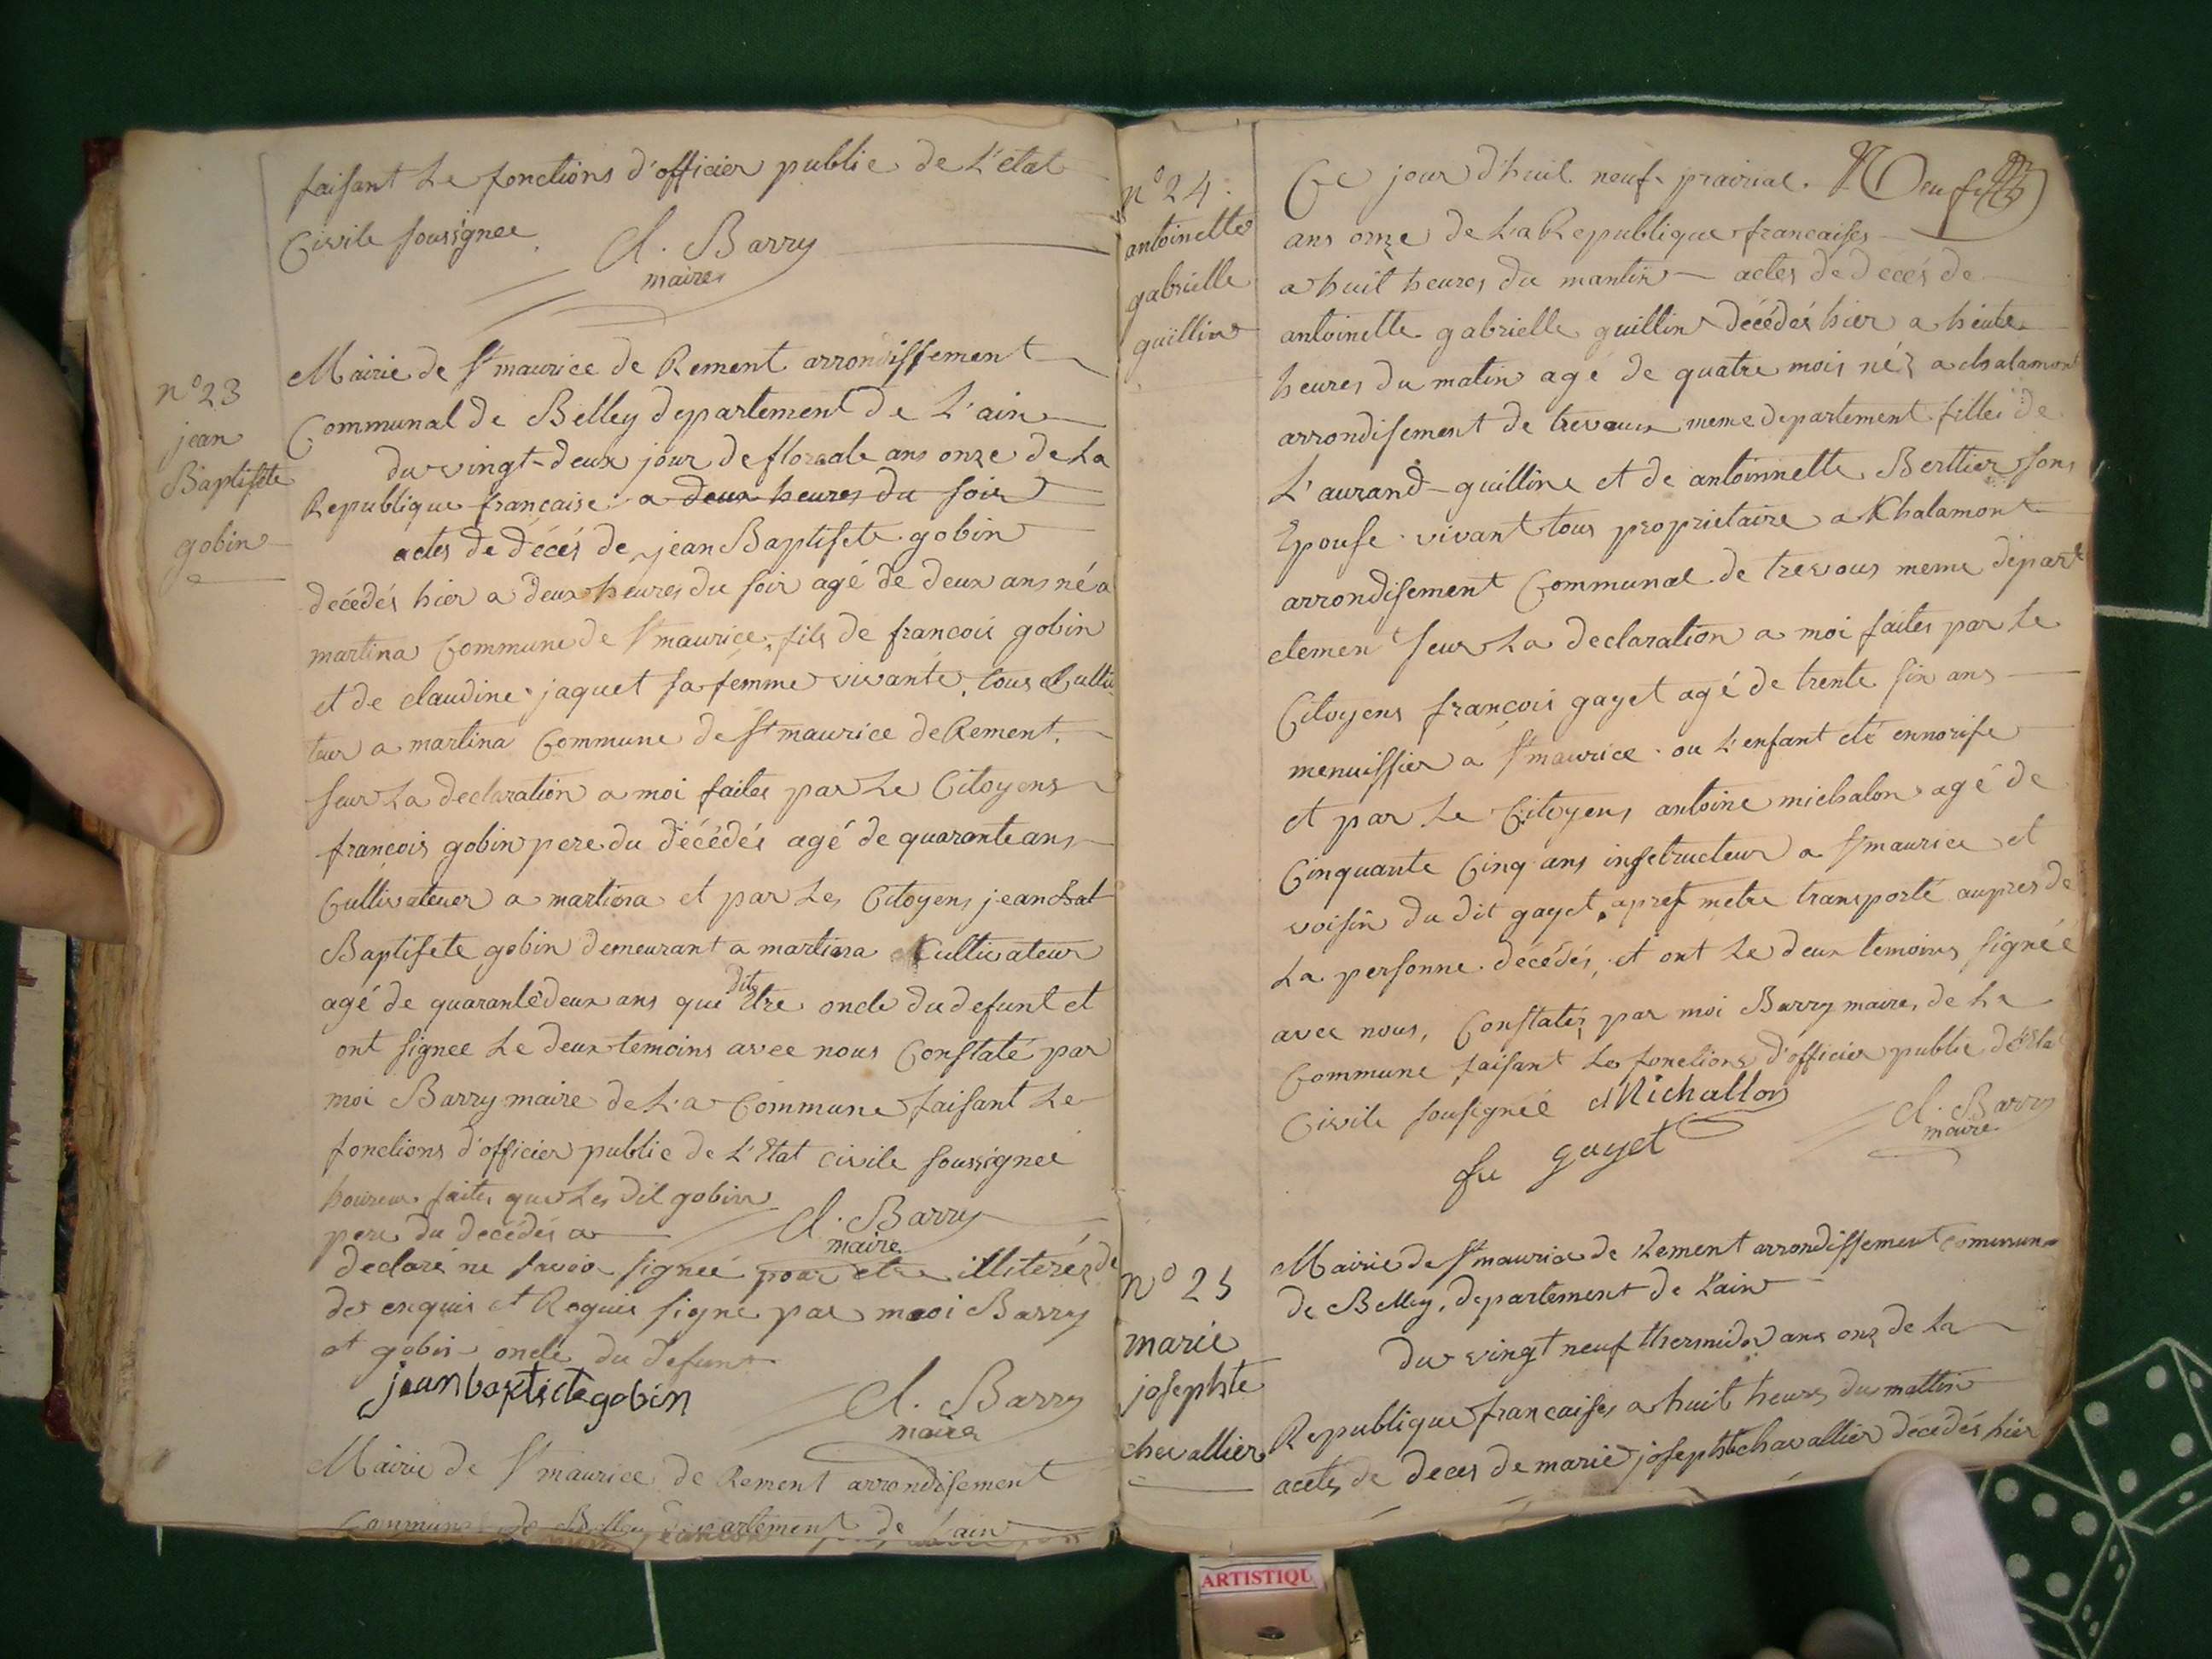 faisant le fonctions d'officier public de L'etat
Civile soussignee
Cl. Barry
maire
n° 23
jean
Baptiste
gobin
Mairie de St maurice de Rement arrondissement
Communal de Belley departement de L'ain
du vingt-deux jour de floreale ans onze de La
Republique française a deux heures du soir
actes de décés de jean Baptiste gobin
décédés hier a deux heures du soir agé de deux ans né a
martina Commune de St maurice, fils de francois gobin
et de claudine jaquet sa femme vivante, tous Cultiva
teur a martina Commune de St maurice de Rement.
seur La declaration a moi faites par Le Citoyens
françois gobin pere du décédés agé de quarante ans
Cultivateuer a martina et par Les Citoyens jean
Baptiste gobin demeurant a martina Cultivateur
agé de quarante deux ans que dit Etre oncle du defunt et
ont signee Le deux temoins avec nous Constaté par
moi Barry maire de L'a Commune faisant Le
fonctions d'officier public de L'Etat civile soussignee
faites que Les dit gobin
pere du decédés a
Cl. Barry
maire
declaré ne savoir signeé pour etre illiterés de
de enquis et Requis signe par moi Barry
et gobin oncle du defunt
jean baptiste gobin
Cl. Barry
maire
Mairie de St maurice de Rement arrondisement
Communal de Belley departement de Lain
n° 24.
antoinette
gabrielle
guillin
Ce jour d'huit neuf prairial. Neuf
ans onze de La Republique francaises
a huit heures du mantin actes de décés de
antoinette gabrielle guillin décédés hier a
heures du matin agé de quatre mois nés a chalamont
arrondisement de trevaux meme departement filles de
L'aurand guilline et de antoinnette Berttier sons
Epouse vivant tous proprietaire a Khalamont
arrondisement Communal de trevous meme départ
element seur La declaration a moi faites par Le
Citoyens françois gayet agé de trente six ans
menuissier a St maurice ou L'enfant eté ennorise
et par Le Citoyens antoine michalon agé de
Cinquante Cinq ans instructeur a St maurice et
voisin du dit gayet, apres metre transporté aupres de
La personne décédés, et ont Le deux temoins signéé
avec nous, Constatés par moi Barry maire, de La
Commune faisant Les fonctions d'officier public de L'Eta
Civile sousignéé Michallon
Cl. Barry
maire
gayet
n° 25
marie
josephte
chevallier
Mairie de St maurice de Rement arrondissement commun
de Belley, departement de Lain
du vingt neuf thermidor ans onz de La
Republique francaises a huit heures du mattin
actes de deces de marie josephte chavallier décédés hier